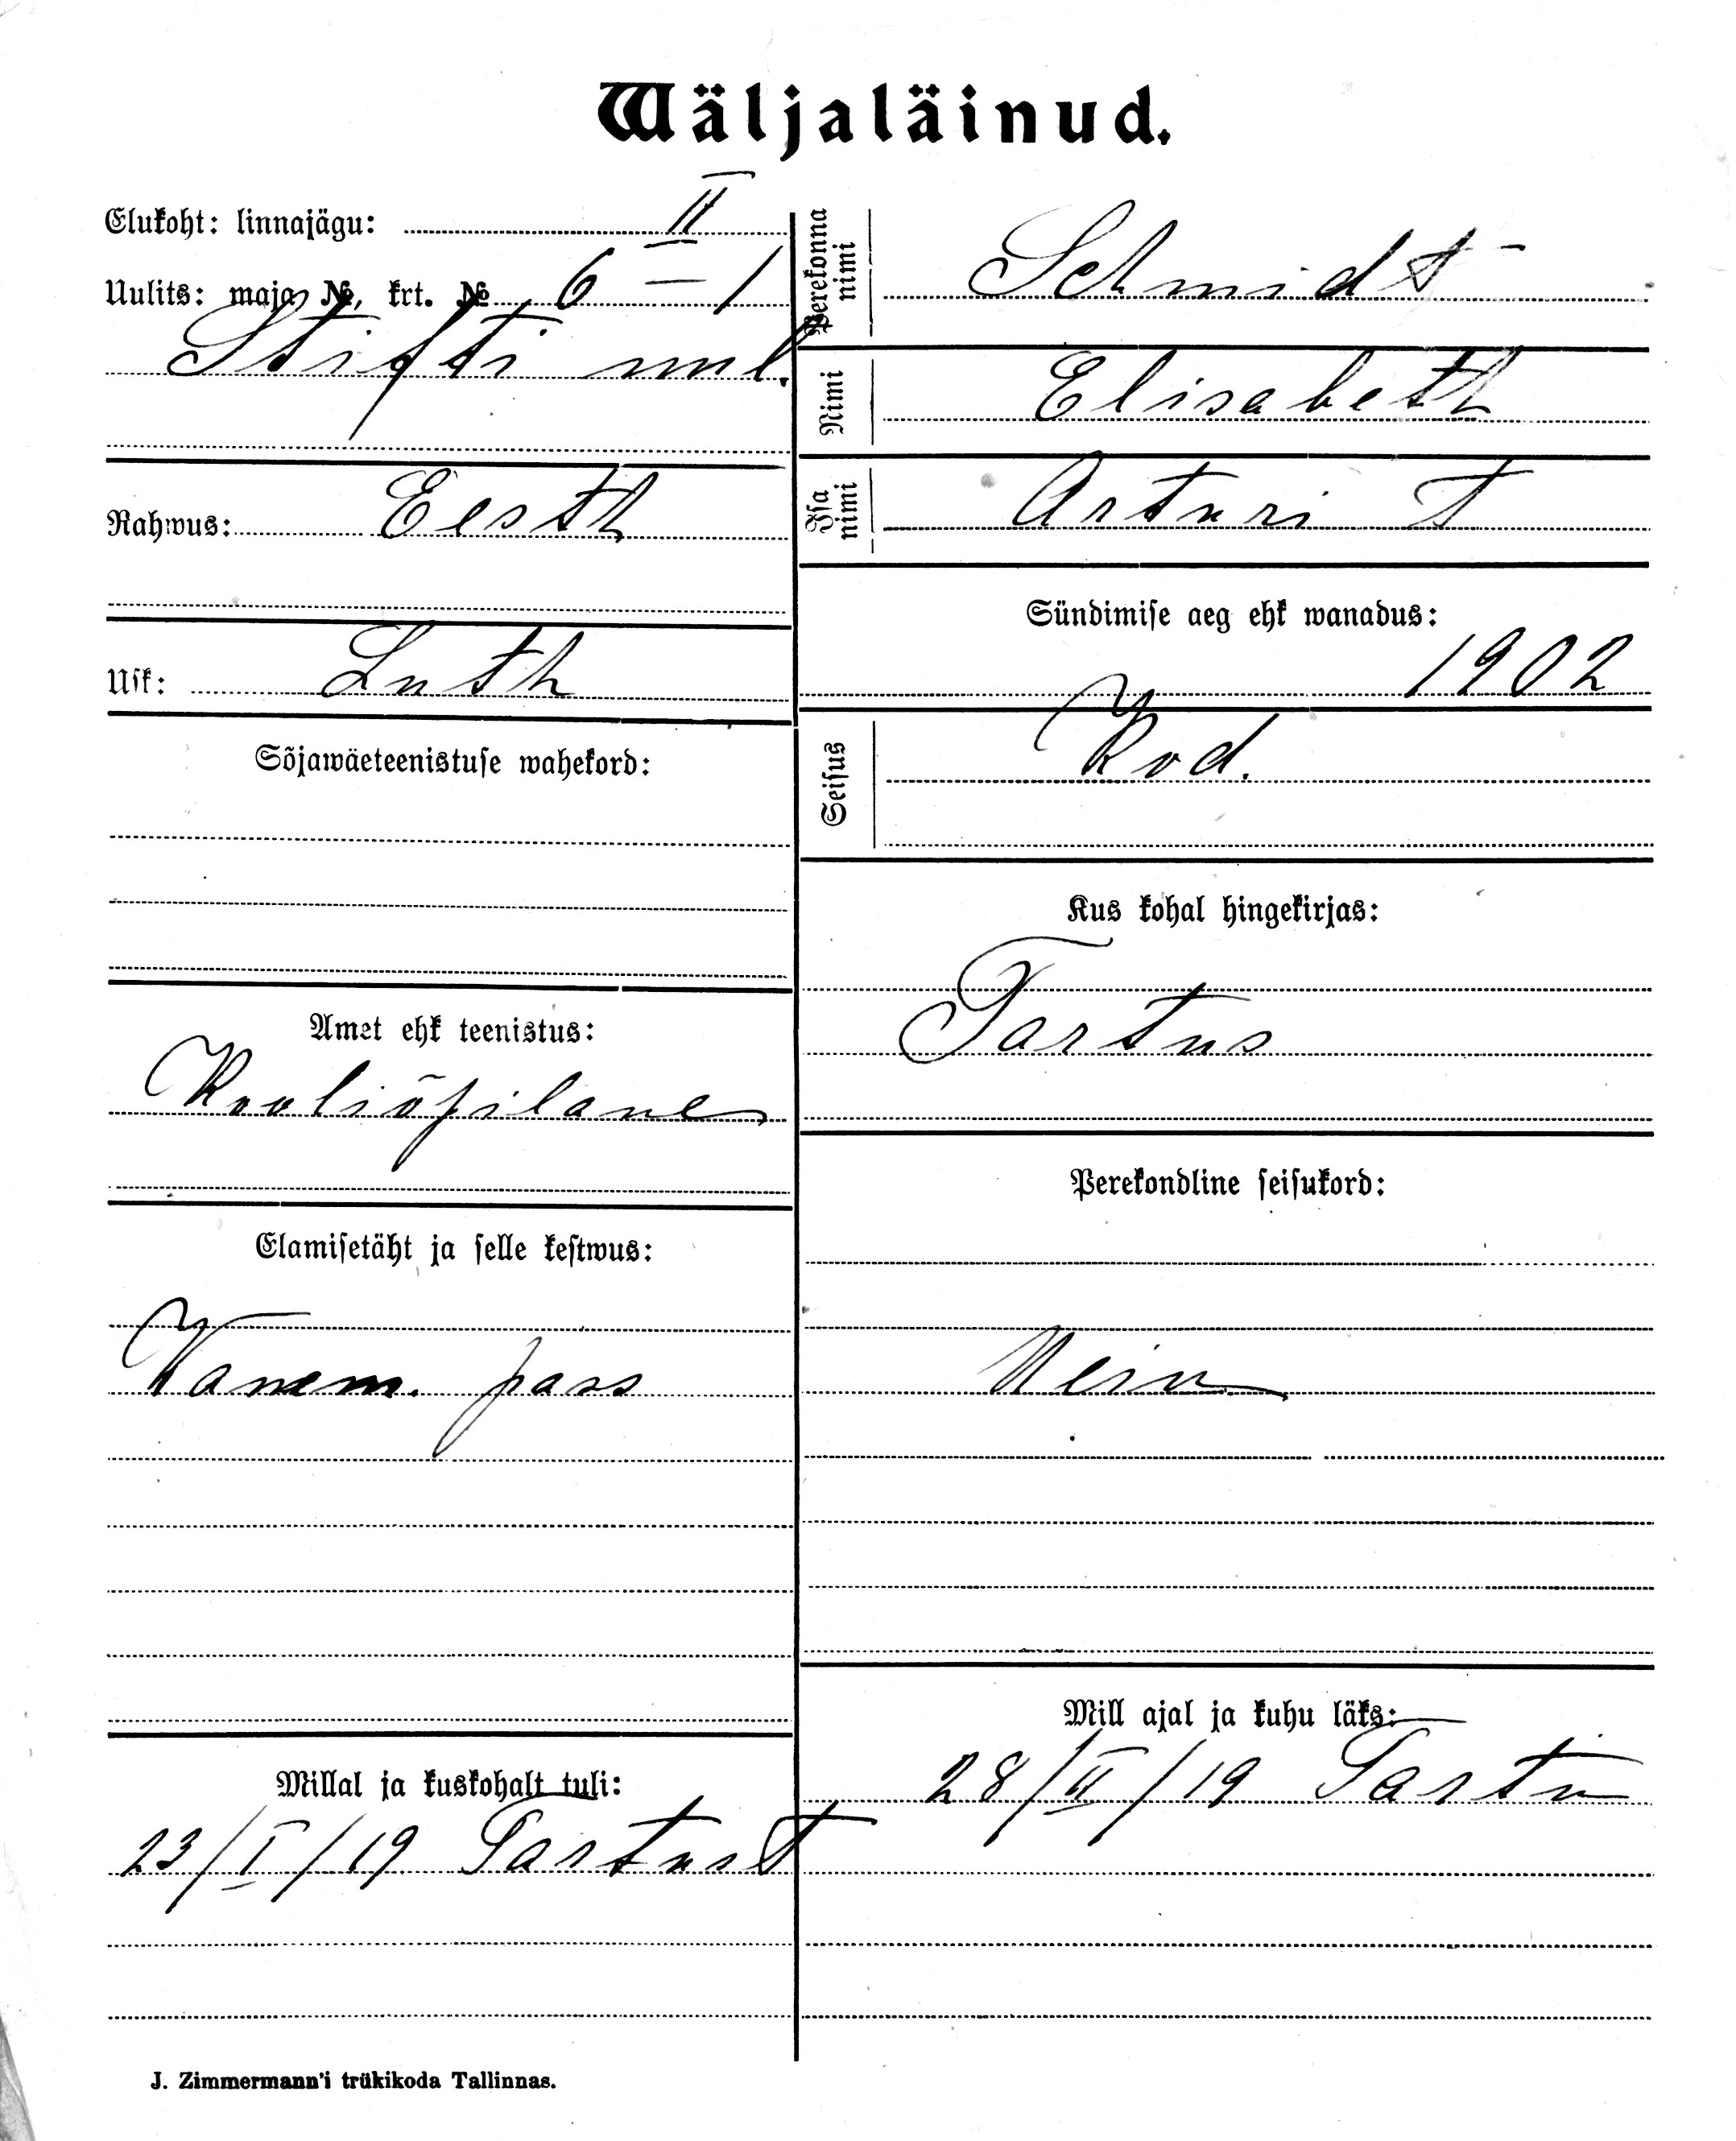 Wäljaläinud.
Elukoht: linnajägu: II
Uulits: maja №, krt. № 6 — 1
Stifti uul.
Rahwus: Eesth
Usk: Luth
Sõjawäeteenistuse wahekord:
Amet ehk teenistus:
Kooliõpilane
Elamisetäht ja selle kestwus:
Wanem. pass
Millal ja kuskohalt tuli:
23/I/19 Tartust
Perekonna nimi Schmidt
Nimi Elisabeth
Isa nimi Arturi t
Sündimise aeg ehk wanadus:
1902
Seisus Kod.
Kus kohal hingekirjas:
Tartus
Perekondline seisukord:
Nein
Mill ajal ja kuhu läks:
28/II/19 Tartu
J. Zimmermann'i trükikoda Tallinnas.